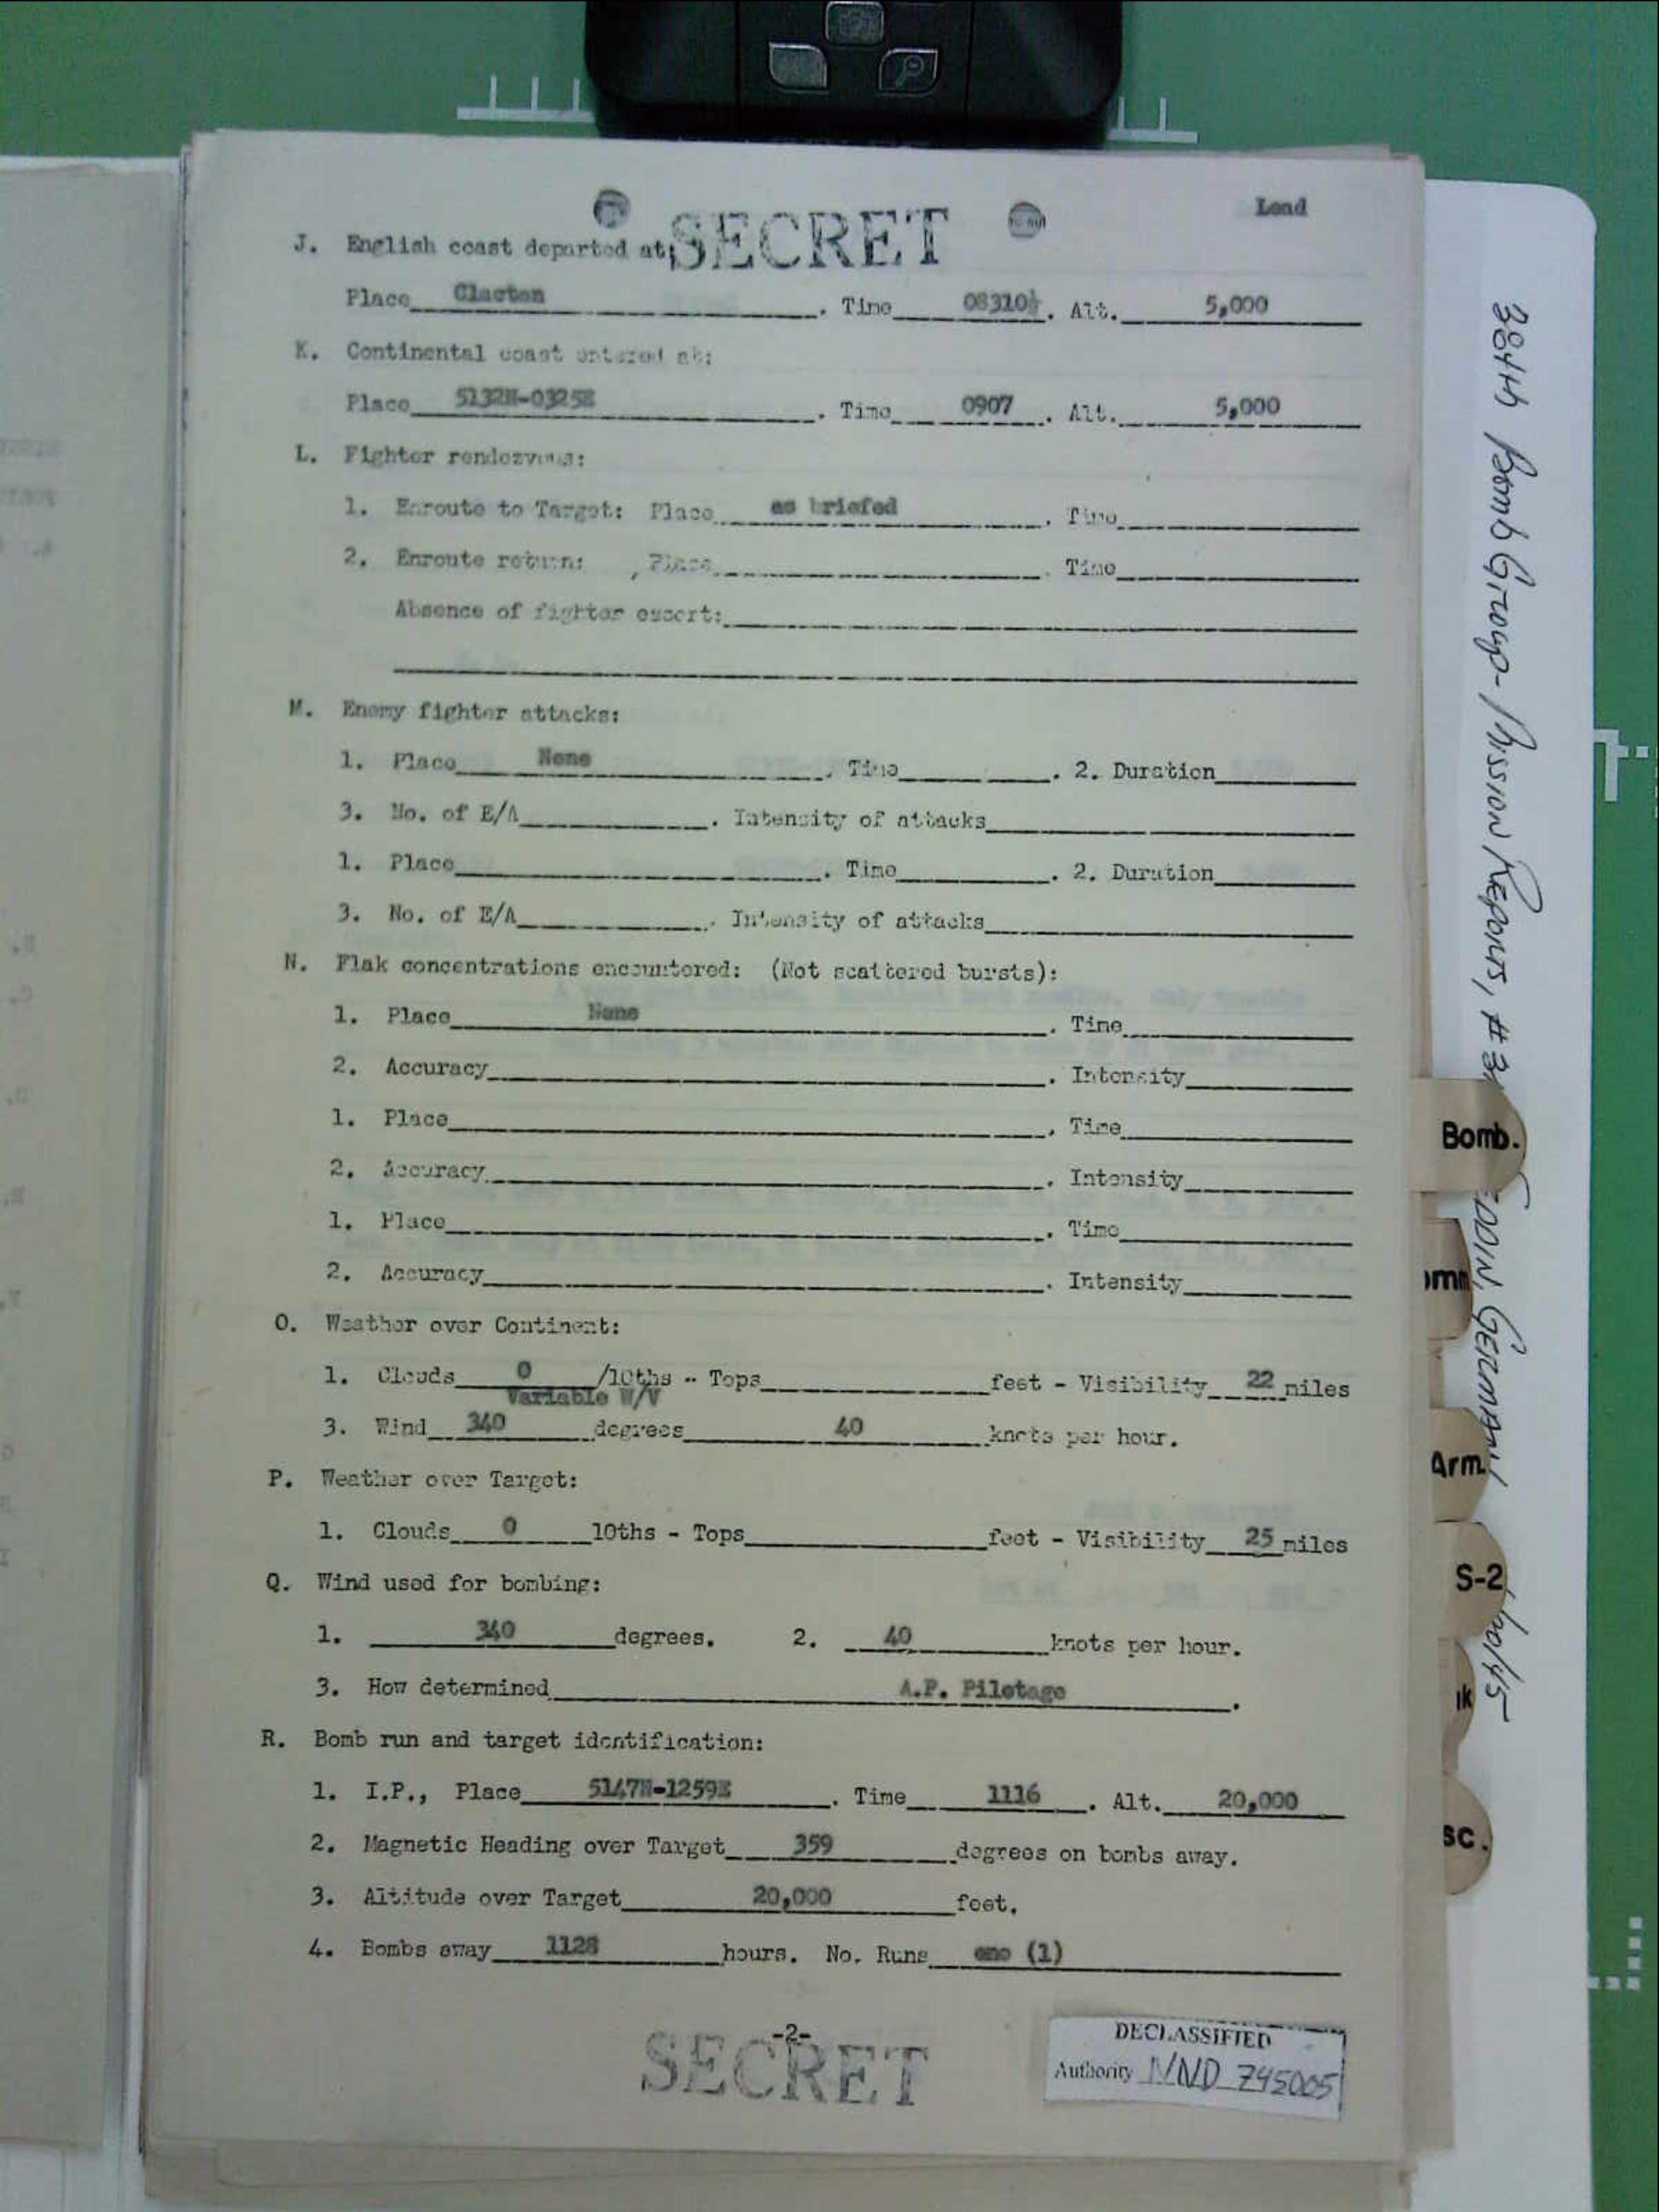 Lead
SECRET
J. English coast departed at:
Place Clacton . Time 08310½ . Alt. 5,000
K. Continental coast entered at:
Place 5132N-0325E . Time 0907 . Alt. 5,000
L. Fighter rendezvous:
1. Enroute to Target: Place as briefed . Time
2. Enroute return: , Place . Time
Absence of fighter escort:
M. Enemy fighter attacks:
1. Place None . Time . 2. Duration
3. No. of E/A . Intensity of attacks
1. Place . Time . 2. Duration
3. No. of E/A . Intensity of attacks
N. Flak concentrations encountered: (Not scattered bursts):
1. Place None . Time
2. Accuracy . Intensity
1. Place . Time
2. Accuracy . Intensity
1. Place . Time
2. Accuracy . Intensity
O. Weather over Continent:
1. Clouds 0 /10ths - Tops feet - Visibility 22 miles
Variable W/V
3. Wind 340 degrees 40 knots per hour.
P. Weather over Target:
1. Clouds 0 10ths - Tops feet - Visibility 25 miles
Q. Wind used for bombing:
1. 340 degrees. 2. 40 knots per hour.
3. How determined A.P. Pilotage .
R. Bomb run and target identification:
1. I.P., Place 5147N-1259E . Time 1116 . Alt. 20,000
2. Magnetic Heading over Target 359 degrees on bombs away.
3. Altitude over Target 20,000 feet.
4. Bombs away 1128 hours. No. Runs one (1)
-2-
SECRET
DECLASSIFIED
Authority NND 745005
384th Bomb Group - Mission Reports, #3 GERMANY /45
Bomb.
Arm.
S-2